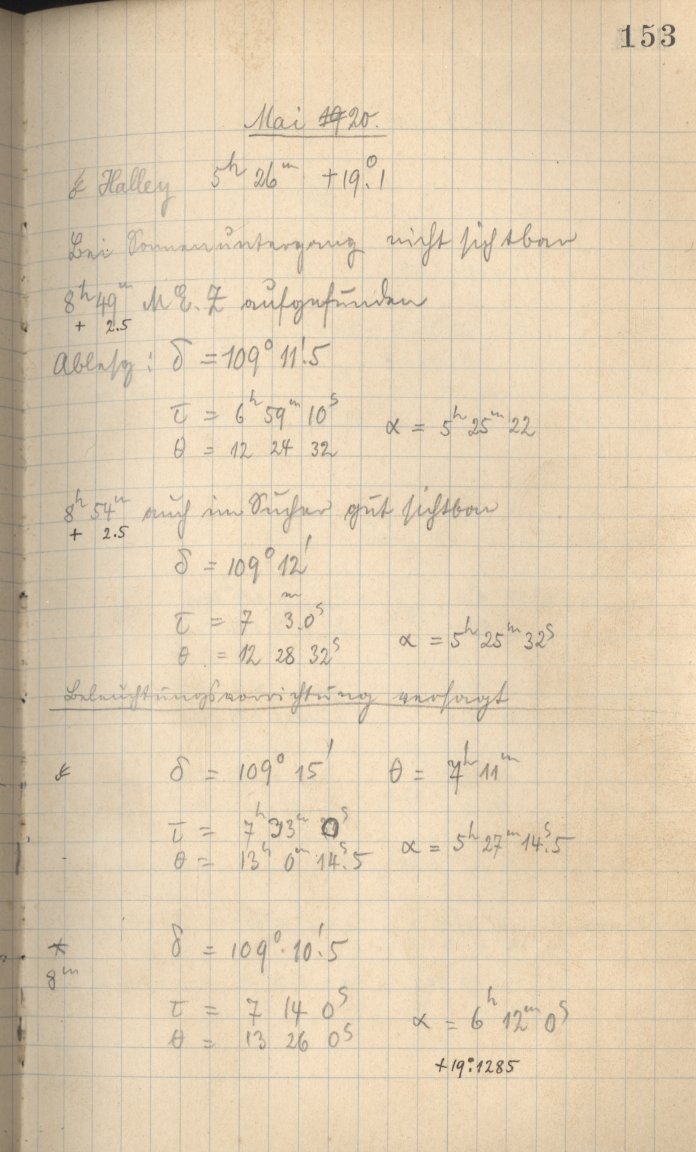 153
Mai 20.
☄ Halley 5ʰ 26ᵐ +19°.1
Bei Sonnenuntergang nicht sichtbar
8ʰ 49ᵐ M.E.Z aufgefunden
+ 2.5
Ablesg: δ = 109° 11'.5
τ = 6ʰ 59ᵐ 10ˢ
α = 5ʰ 25ᵐ 22
θ = 12 24 32
8ʰ 54ᵐ auch im Sucher gut sichtbar
+ 2.5
δ = 109° 12'
τ = 7 3ᵐ.0ˢ
α = 5ʰ 25ᵐ 32ˢ
θ = 12 28 32ˢ
Beleuchtungsvorrichtung versagt
☄ δ = 109° 15' θ = 7ʰ 11ᵐ
τ = 7ʰ 33ᵐ 0ˢ
α = 5ʰ 27ᵐ 14ˢ.5
θ = 13ʰ 0ᵐ 14ˢ.5
* δ = 109° 10'.5
8ᵐ
τ = 7 14 0ˢ
α = 6ʰ 12ᵐ 0ˢ
θ = 13 26 0ˢ
+19°.1285